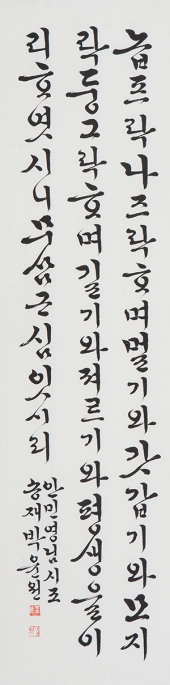 놉프락나즈락ᄒᆞ며멀기와갓갑기와모지
락둥그락ᄒᆞ며길기와져르기와평생을이
리ᄒᆞ엿시니무삼근심잇시리
안민영님시조
송재박윤원